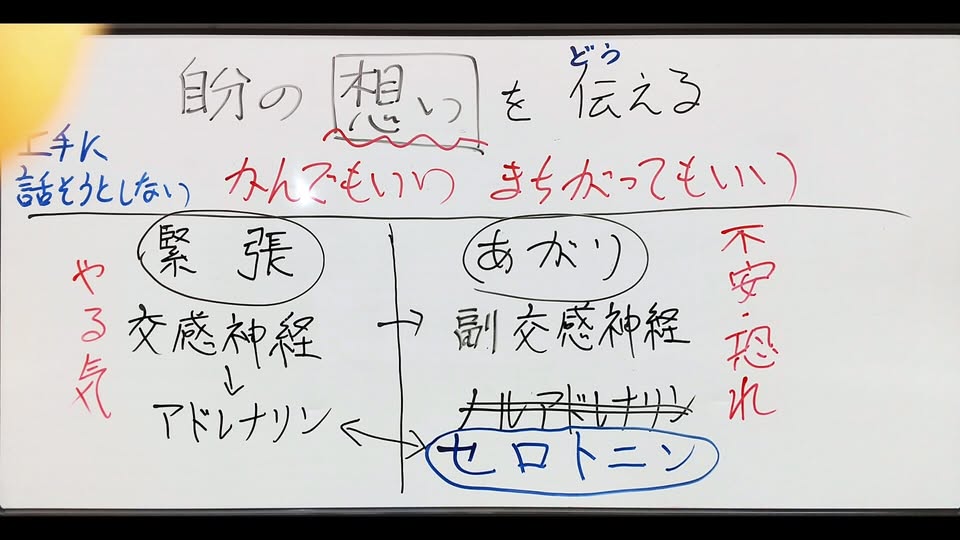 どう
自分の想いを伝える
上手に
話そうとしない
かんでもいい まちがってもいい
緊張
あがり
やる気
不安・恐れ
交感神経 → 副交感神経
↓
アドレナリン
ノルアドレナリン
セロトニン